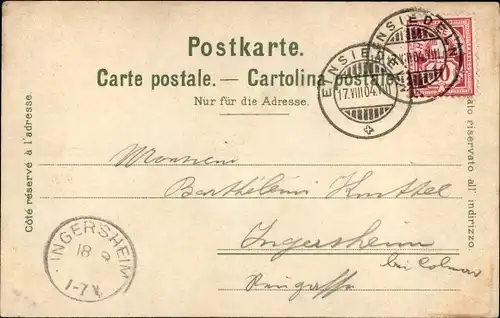 Postkarte.
Carte postale. — Cartolina postale
Nur für die Adresse.
EINSIEDELN
17.VIII 04.
EINSIEDELN
04.VIII
10
Côté réservé à l'adresse.
lato riservato all' indirizzo.
Monsieur
Barthélémi Knittel
Ingersheim
bei Colmar
INGERSHEIM
18 8
1-7